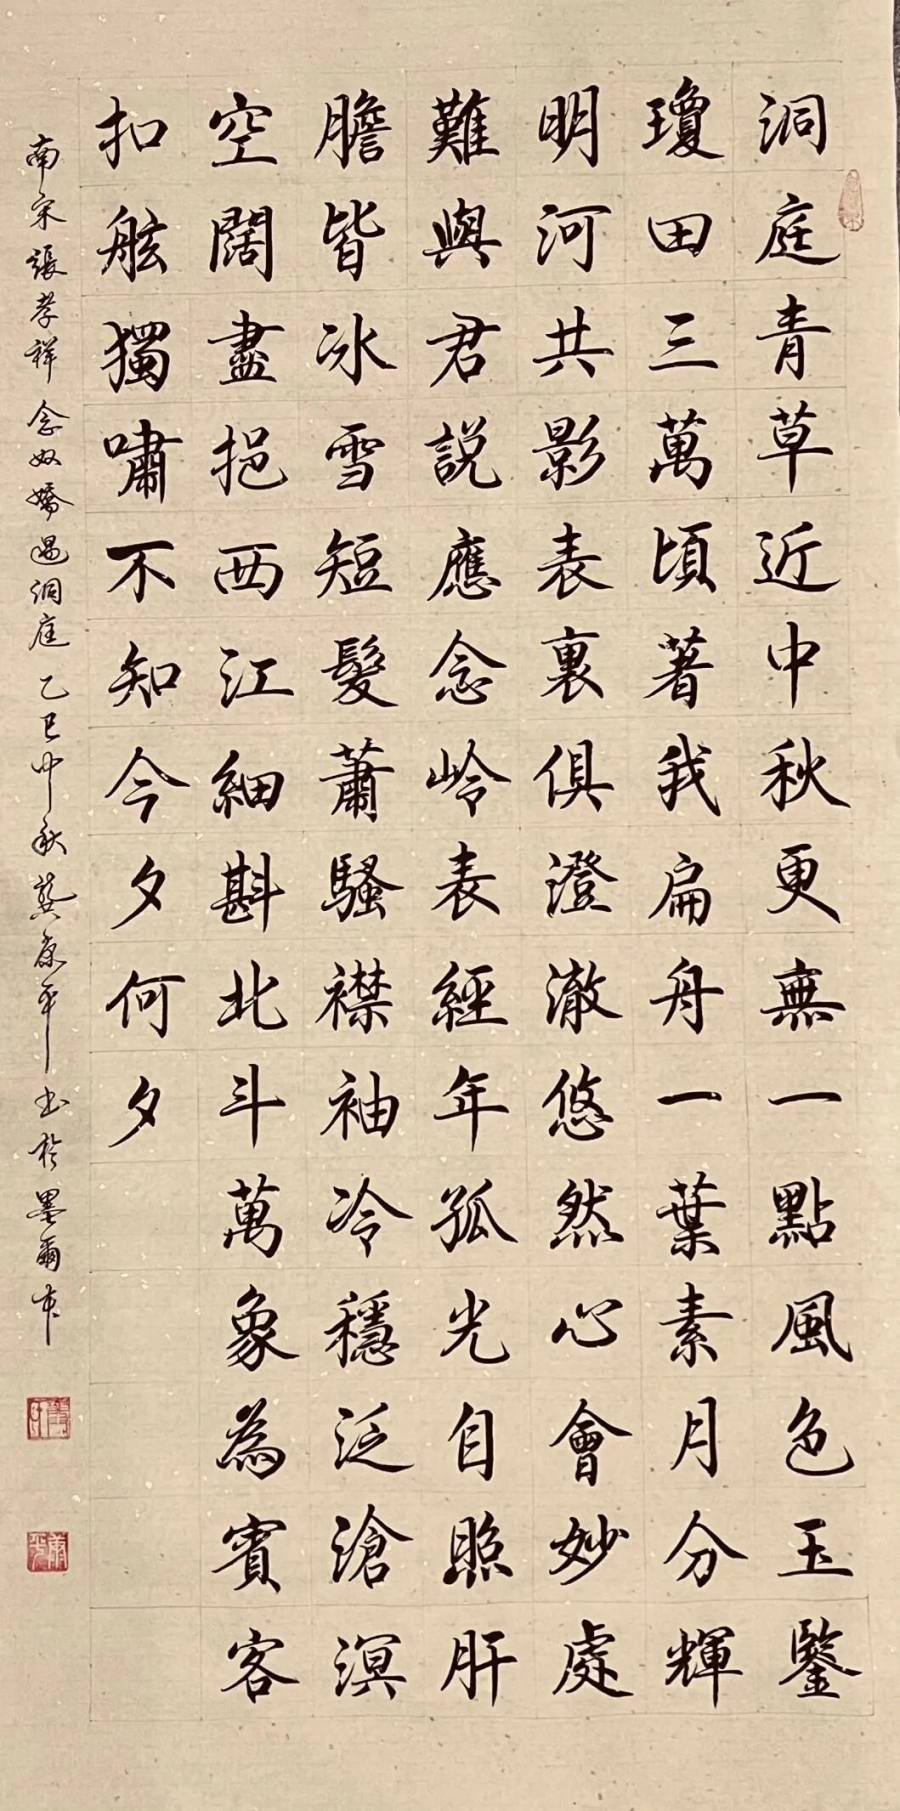 洞庭青草近中秋更無一點風色玉鑒
瓊田三萬頃著我扁舟一葉素月分輝
明河共影表裏俱澄澈悠然心會妙處
難與君説應念岭表經年孤光自照肝
膽皆冰雪短髮蕭騷襟袖冷穩泛滄溟
空闊盡挹西江細斟北斗萬象為賓客
扣舷獨嘯不知今夕何夕
南宋張孝祥念奴嬌過洞庭乙巳中秋龔康平书於墨爾本